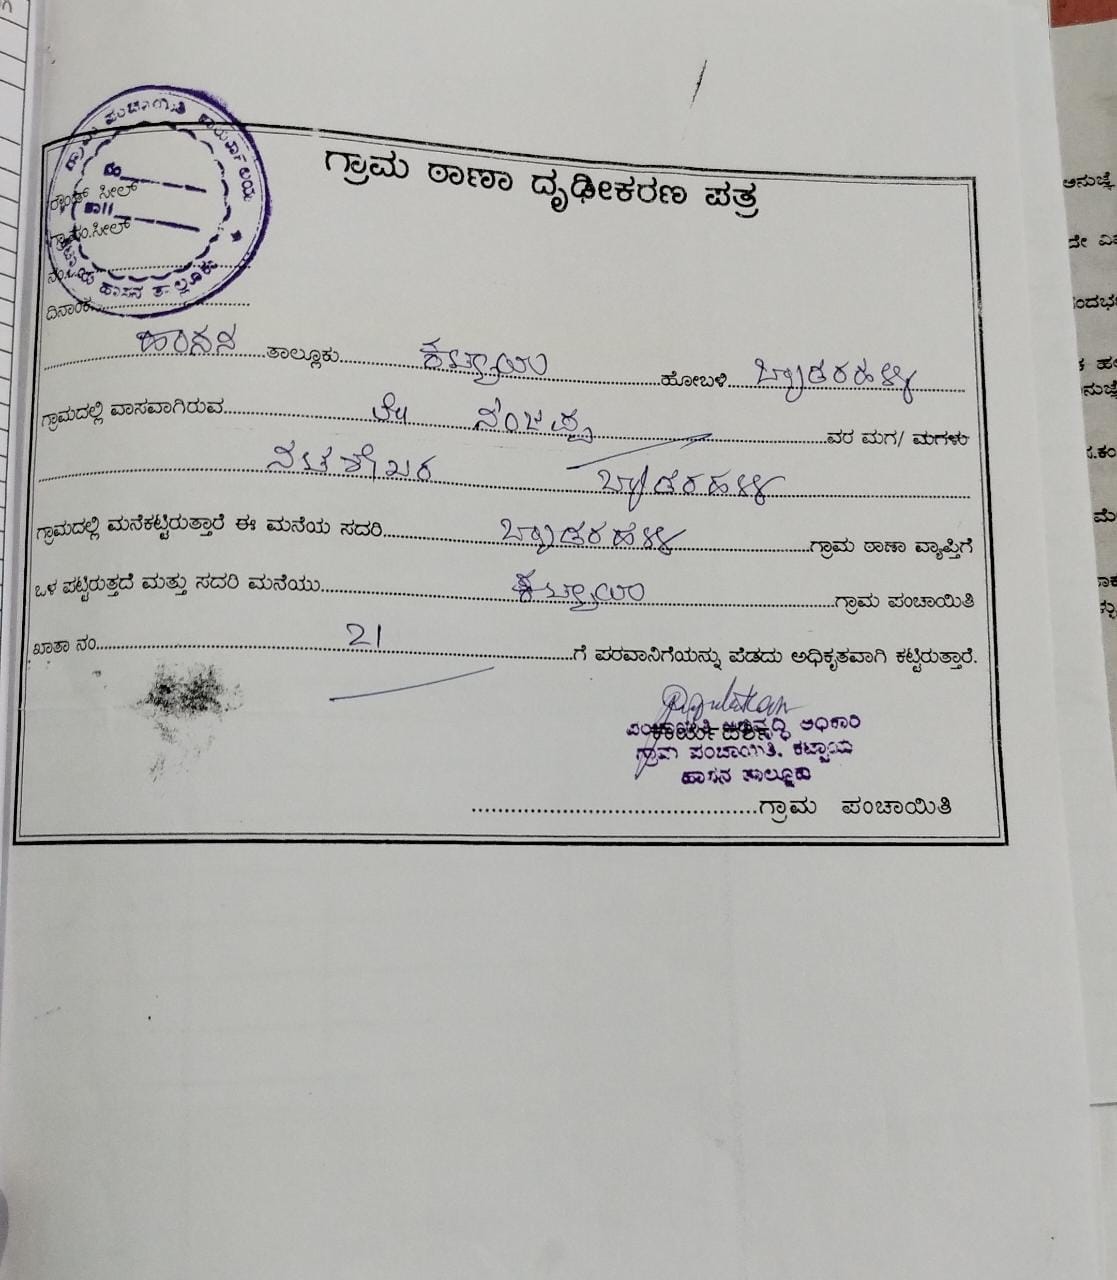 ಗ್ರಾಮ ಪಂಚಾಯಿತಿ ಕಾರ್ಯಾಲಯ
ಹಾಸನ ತಾಲ್ಲೂಕು
ಗ್ರಾಮ ಠಾಣಾ ದೃಢೀಕರಣ ಪತ್ರ
ರೌಂಡ್ ಸೀಲ್
ಗ್ರಾ.ಪಂ.ಸೀಲ್
ನಂ..........
ದಿನಾಂಕ..........
ಹಾಸನ ತಾಲ್ಲೂಕು ಕಟ್ಟಾಯ ಹೋಬಳಿ ಬ್ಯಾಡರಹಳ್ಳಿ
ಗ್ರಾಮದಲ್ಲಿ ವಾಸವಾಗಿರುವ ನಂಜಪ್ಪ ವರ ಮಗ/ ಮಗಳು
ಬ್ಯಾಡರಹಳ್ಳಿ
ಗ್ರಾಮದಲ್ಲಿ ಮನೆಕಟ್ಟಿರುತ್ತಾರೆ ಈ ಮನೆಯ ಸದರಿ ಬ್ಯಾಡರಹಳ್ಳಿ ಗ್ರಾಮ ಠಾಣಾ ವ್ಯಾಪ್ತಿಗೆ
ಒಳ ಪಟ್ಟಿರುತ್ತದೆ ಮತ್ತು ಸದರಿ ಮನೆಯು ಕಟ್ಟಾಯ ಗ್ರಾಮ ಪಂಚಾಯಿತಿ
ಖಾತಾ ನಂ 21 ಗೆ ಪರವಾನಿಗೆಯನ್ನು ಪೆಡದು ಅಧಿಕೃತವಾಗಿ ಕಟ್ಟಿರುತ್ತಾರೆ.
ಕಾರ್ಯದರ್ಶಿ
ಪಂಚಾಯಿತಿ ಅಭಿವೃದ್ಧಿ ಅಧಿಕಾರಿ
ಗ್ರಾಮ ಪಂಚಾಯಿತಿ, ಕಟ್ಟಾಯ
ಹಾಸನ ತಾಲ್ಲೂಕು
ಗ್ರಾಮ ಪಂಚಾಯಿತಿ